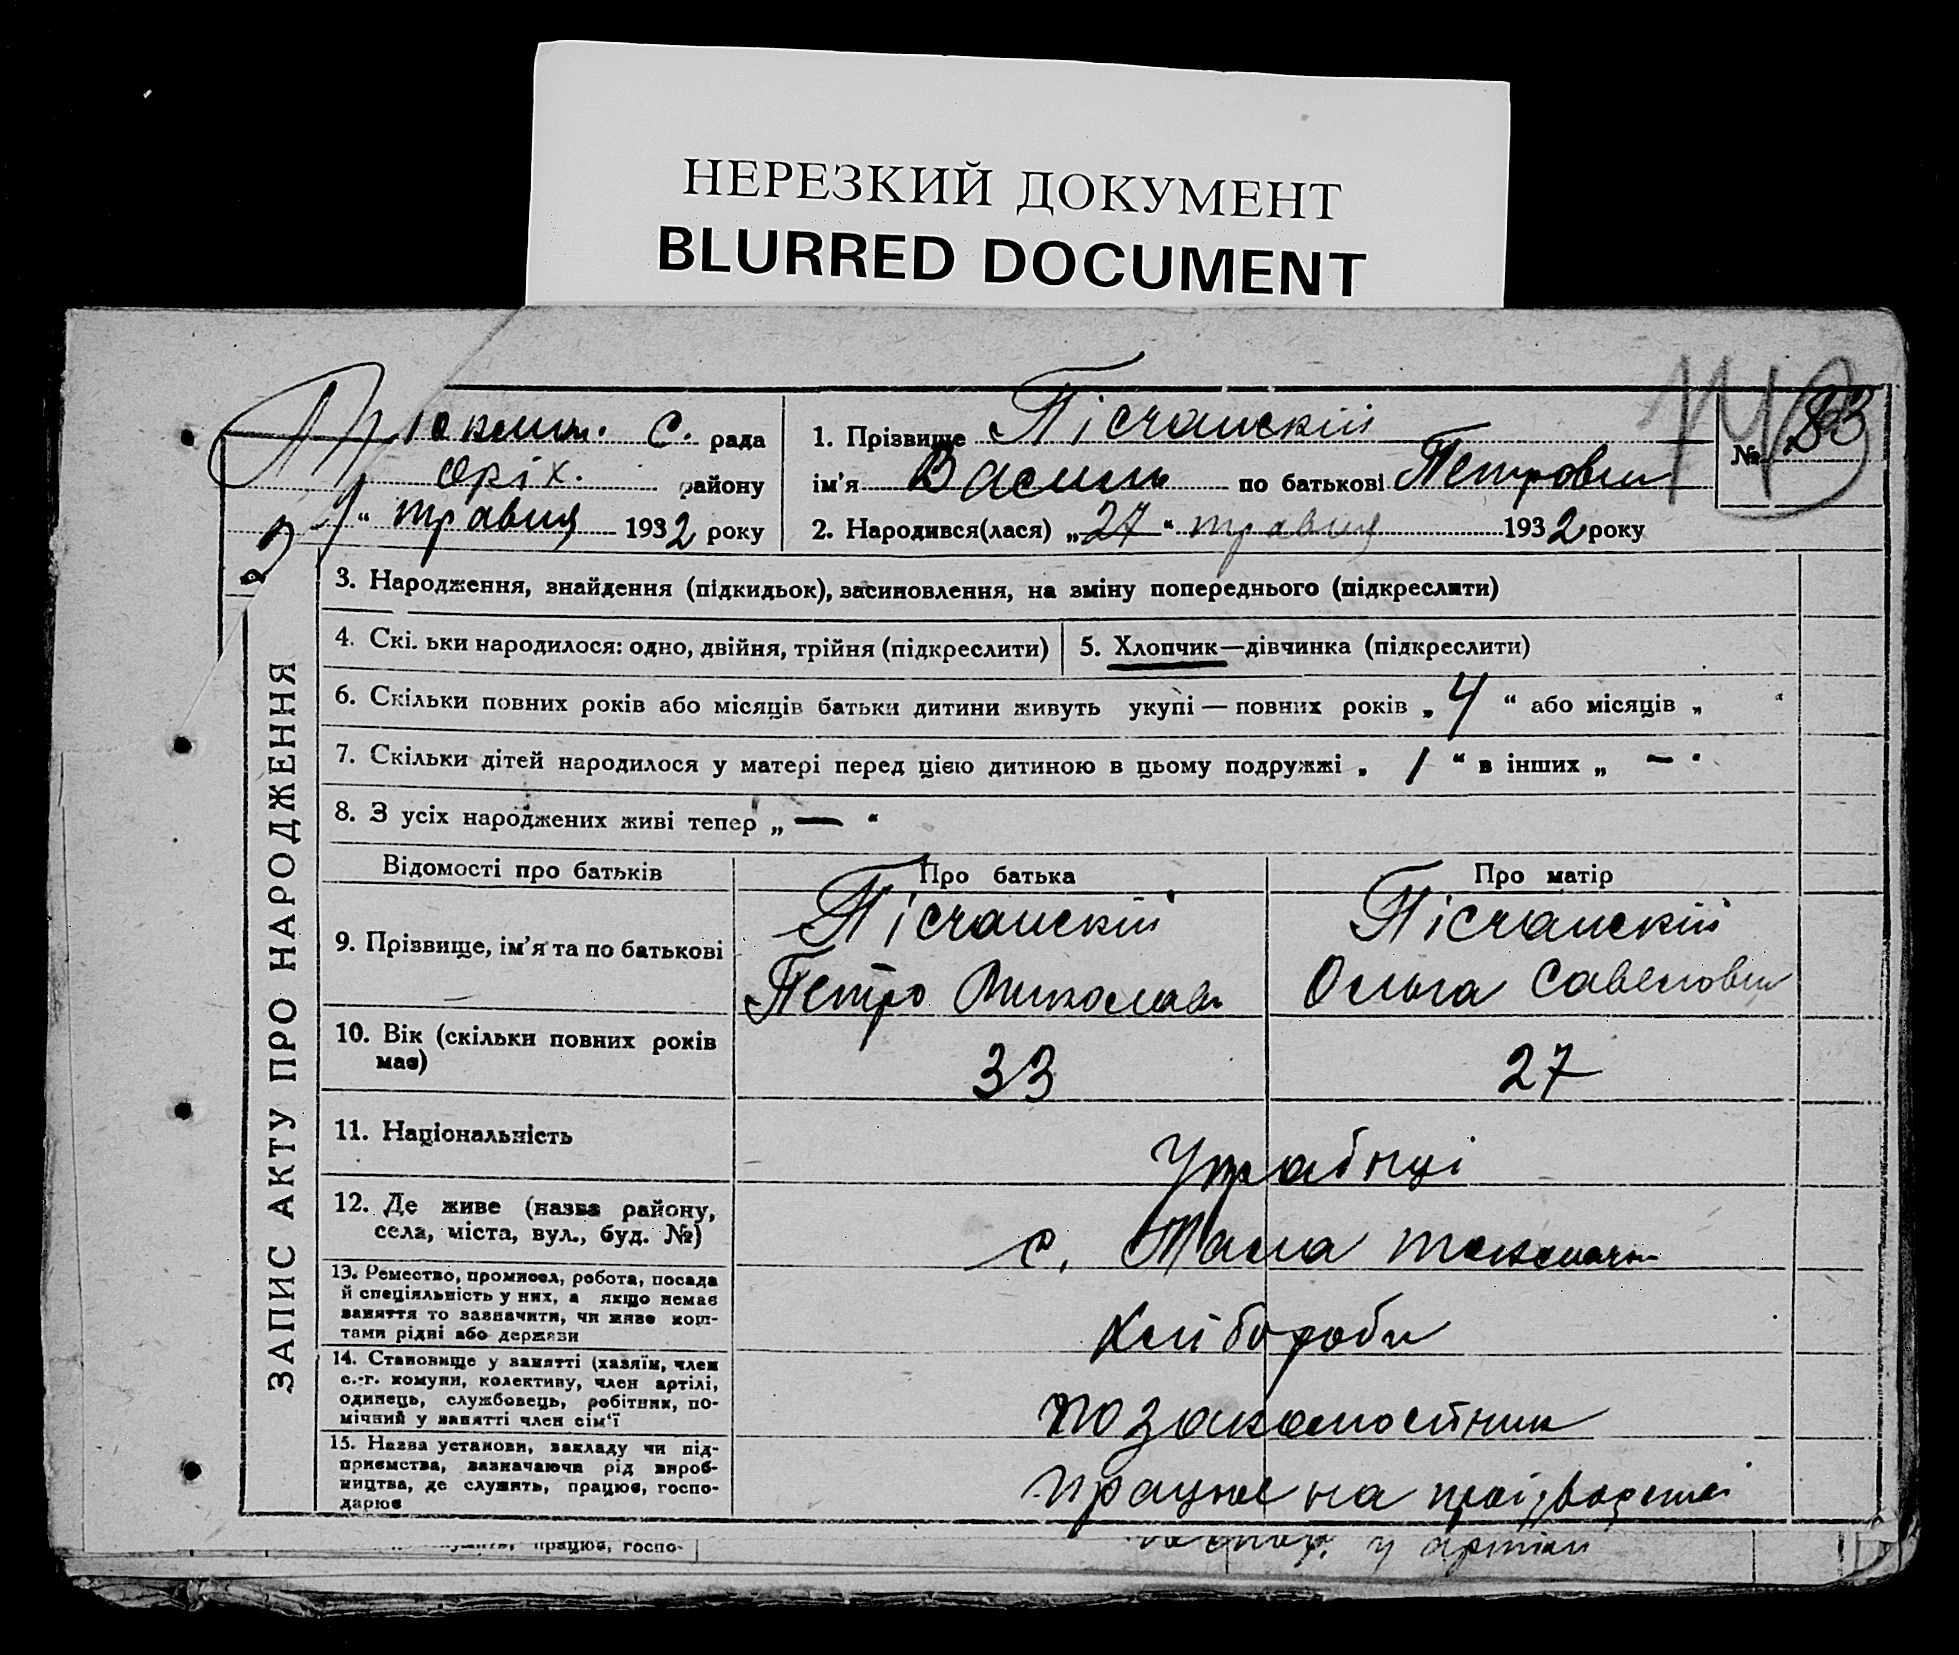 НЕРЕЗКИЙ ДОКУМЕНТ
BLURRED DOCUMENT
с. рада
Оріх. району
" травня 1932 року
1. Прізвище Пісчанский
ім'я Василь по батькові Петрович
2. Народився(лася) „27“ травня 1932 року
№ 83
ЗАПИС АКТУ ПРО НАРОДЖЕННЯ
3. Народження, знайдення (підкидьок), засиновлення, на зміну попереднього (підкреслити)
4. Скі. ьки народилося: одно, двійня, трійня (підкреслити)
5. Хлопчик—дівчинка (підкреслити)
6. Скільки повних років або місяців батьки дитини живуть укупі — повних років „4“ або місяців „ “
7. Скільки дітей народилося у матері перед цією дитиною в цьому подружжі „1“ в інших „—“
8. З усіх народжених живі тепер „—“
Відомості про батьків
Про батька
Про матір
9. Прізвище, ім'я та по батькові
Пісчанский
Петро Миколав.
Пісчанский
Ольга Савеловн
10. Вік (скільки повних років
має)
33
27
11. Національність
Украінці
12. Де живе (назва району,
села, міста, вул., буд. №)
с. Мала токмачк
13. Ремество, промисел, робота, посада
й спеціяльність у них, а якщо немає
заняття то зазначити, чи живе кош-
тами рідні або держави
Хліборобн
14. Становище у занятті (хазяїн, член
с.-г. комуни, колективу, член артілі,
одинець, службовець, робітник, по-
мічний у занятті член сім'ї
15. Назва установи, закладу чи під-
приємства, зазначаючи рід вироб-
ництва, де служить, працює, госпо-
дарює
працює на
працює, госпо-
у артіли